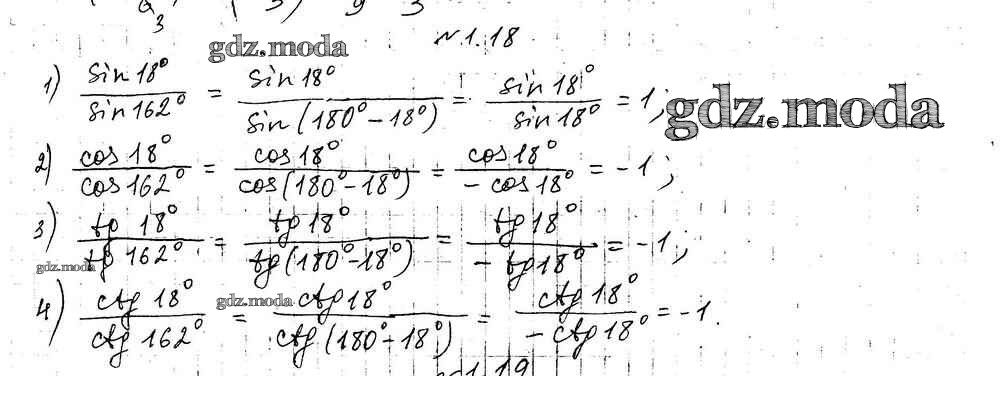 3
gdz.moda
№ 1.18
1) sin 18° / sin 162° = sin 18° / sin(180° - 18°) = sin 18° / sin 18° = 1;
gdz.moda
2) cos 18° / cos 162° = cos 18° / cos(180° - 18°) = cos 18° / - cos 18° = - 1;
3) tg 18° / tg 162° = tg 18° / tg(180° - 18°) = tg 18° / - tg 18° = - 1;
gdz.moda
gdz.moda
4) ctg 18° / ctg 162° = ctg 18° / ctg(180° - 18°) = ctg 18° / - ctg 18° = - 1.